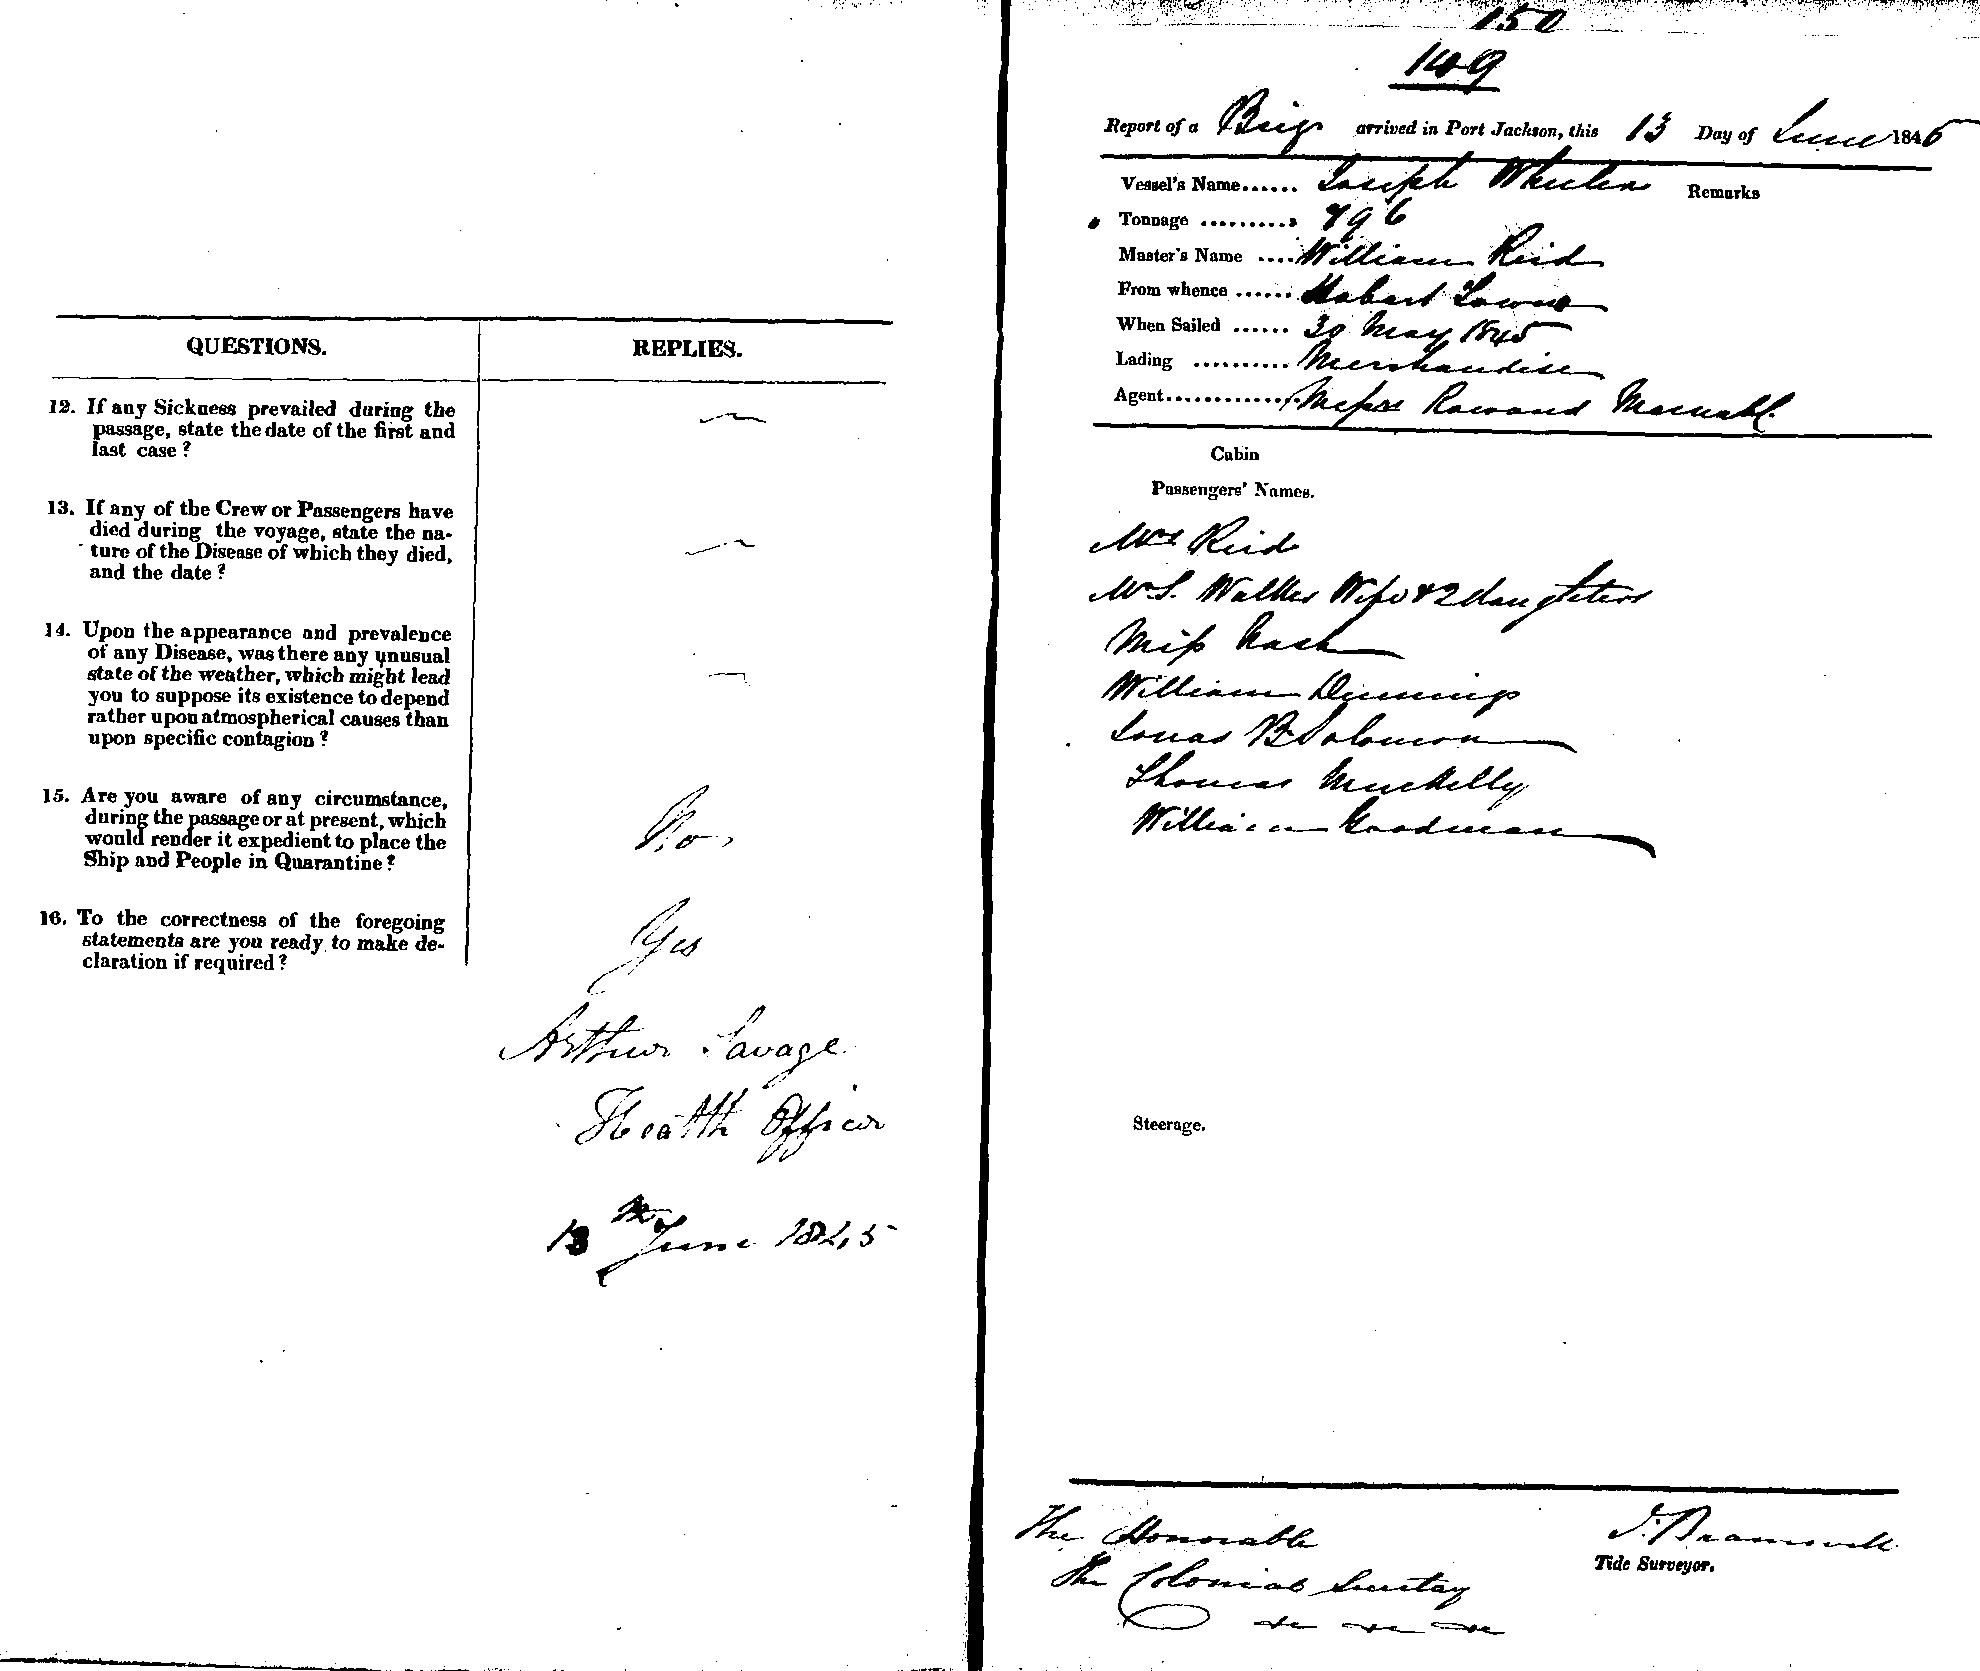 QUESTIONS.
REPLIES.
12. If any Sickness prevailed during the
passage, state the date of the first and
last case ?
13. If any of the Crew or Passengers have
died during the voyage, state the na-
ture of the Disease of which they died,
and the date ?
14. Upon the appearance and prevalence
of any Disease, was there any unusual
state of the weather, which might lead
you to suppose its existence to depend
rather upon atmospherical causes than
upon specific contagion ?
15. Are you aware of any circumstance,
during the passage or at present, which
would render it expedient to place the
Ship and People in Quarantine ?
No
16. To the correctness of the foregoing
statements are you ready to make de-
claration if required ?
Yes
Arthur Savage
Health Officer
13th June 1845
150
149
Report of a Brig arrived in Port Jackson, this 13 Day of June 1845
Vessel's Name...... Joseph Remarks
Tonnage .......... 296
Master's Name .... William Reid
From whence ...... Hobart Town
When Sailed ...... 30 May 1845
Lading .......... Merchandise
Agent............. Messrs Rowand Macnab
Cabin
Passengers' Names.
Mrs Reid
Mr S. Walker Wife & 2 daughters
Miss Nash
William
Jonas B Solomon
Thomas
William Goodman
Steerage.
The Honorable
The Colonial Secretary
T. Bramwell
Tide Surveyor.